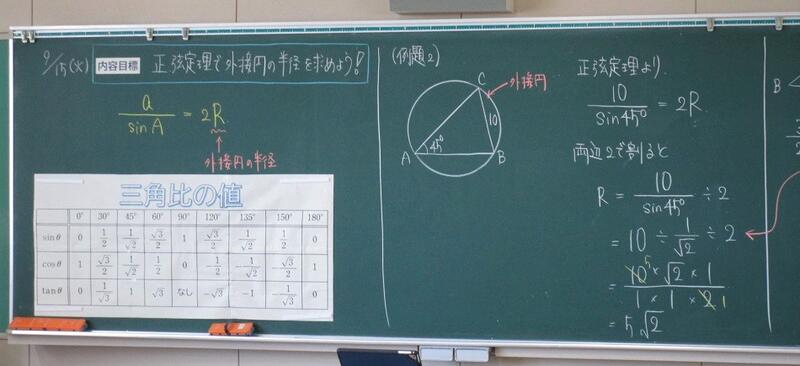 9/15(火) 内容目標 正弦定理で外接円の半径を求めよう!
a/sin A = 2R
外接円の半径
三角比の値
0° 30° 45° 60° 90° 120° 135° 150° 180°
sinθ 0 1/2 1/√2 √3/2 1 √3/2 1/√2 1/2 0
cosθ 1 √3/2 1/√2 1/2 0 -1/2 -1/√2 -√3/2 1
tanθ 0 1/√3 1 √3 なし -√3 -1 -1/√3 0
(例題2)
C 外接円
10
45°
A B
正弦定理より
10/sin45° = 2R
両辺2で割ると
R = 10/sin45° ÷ 2
= 10 ÷ 1/√2 ÷ 2
= 10 5 × √2 × 1 / 1 × 1 × 2 1
= 5√2
B